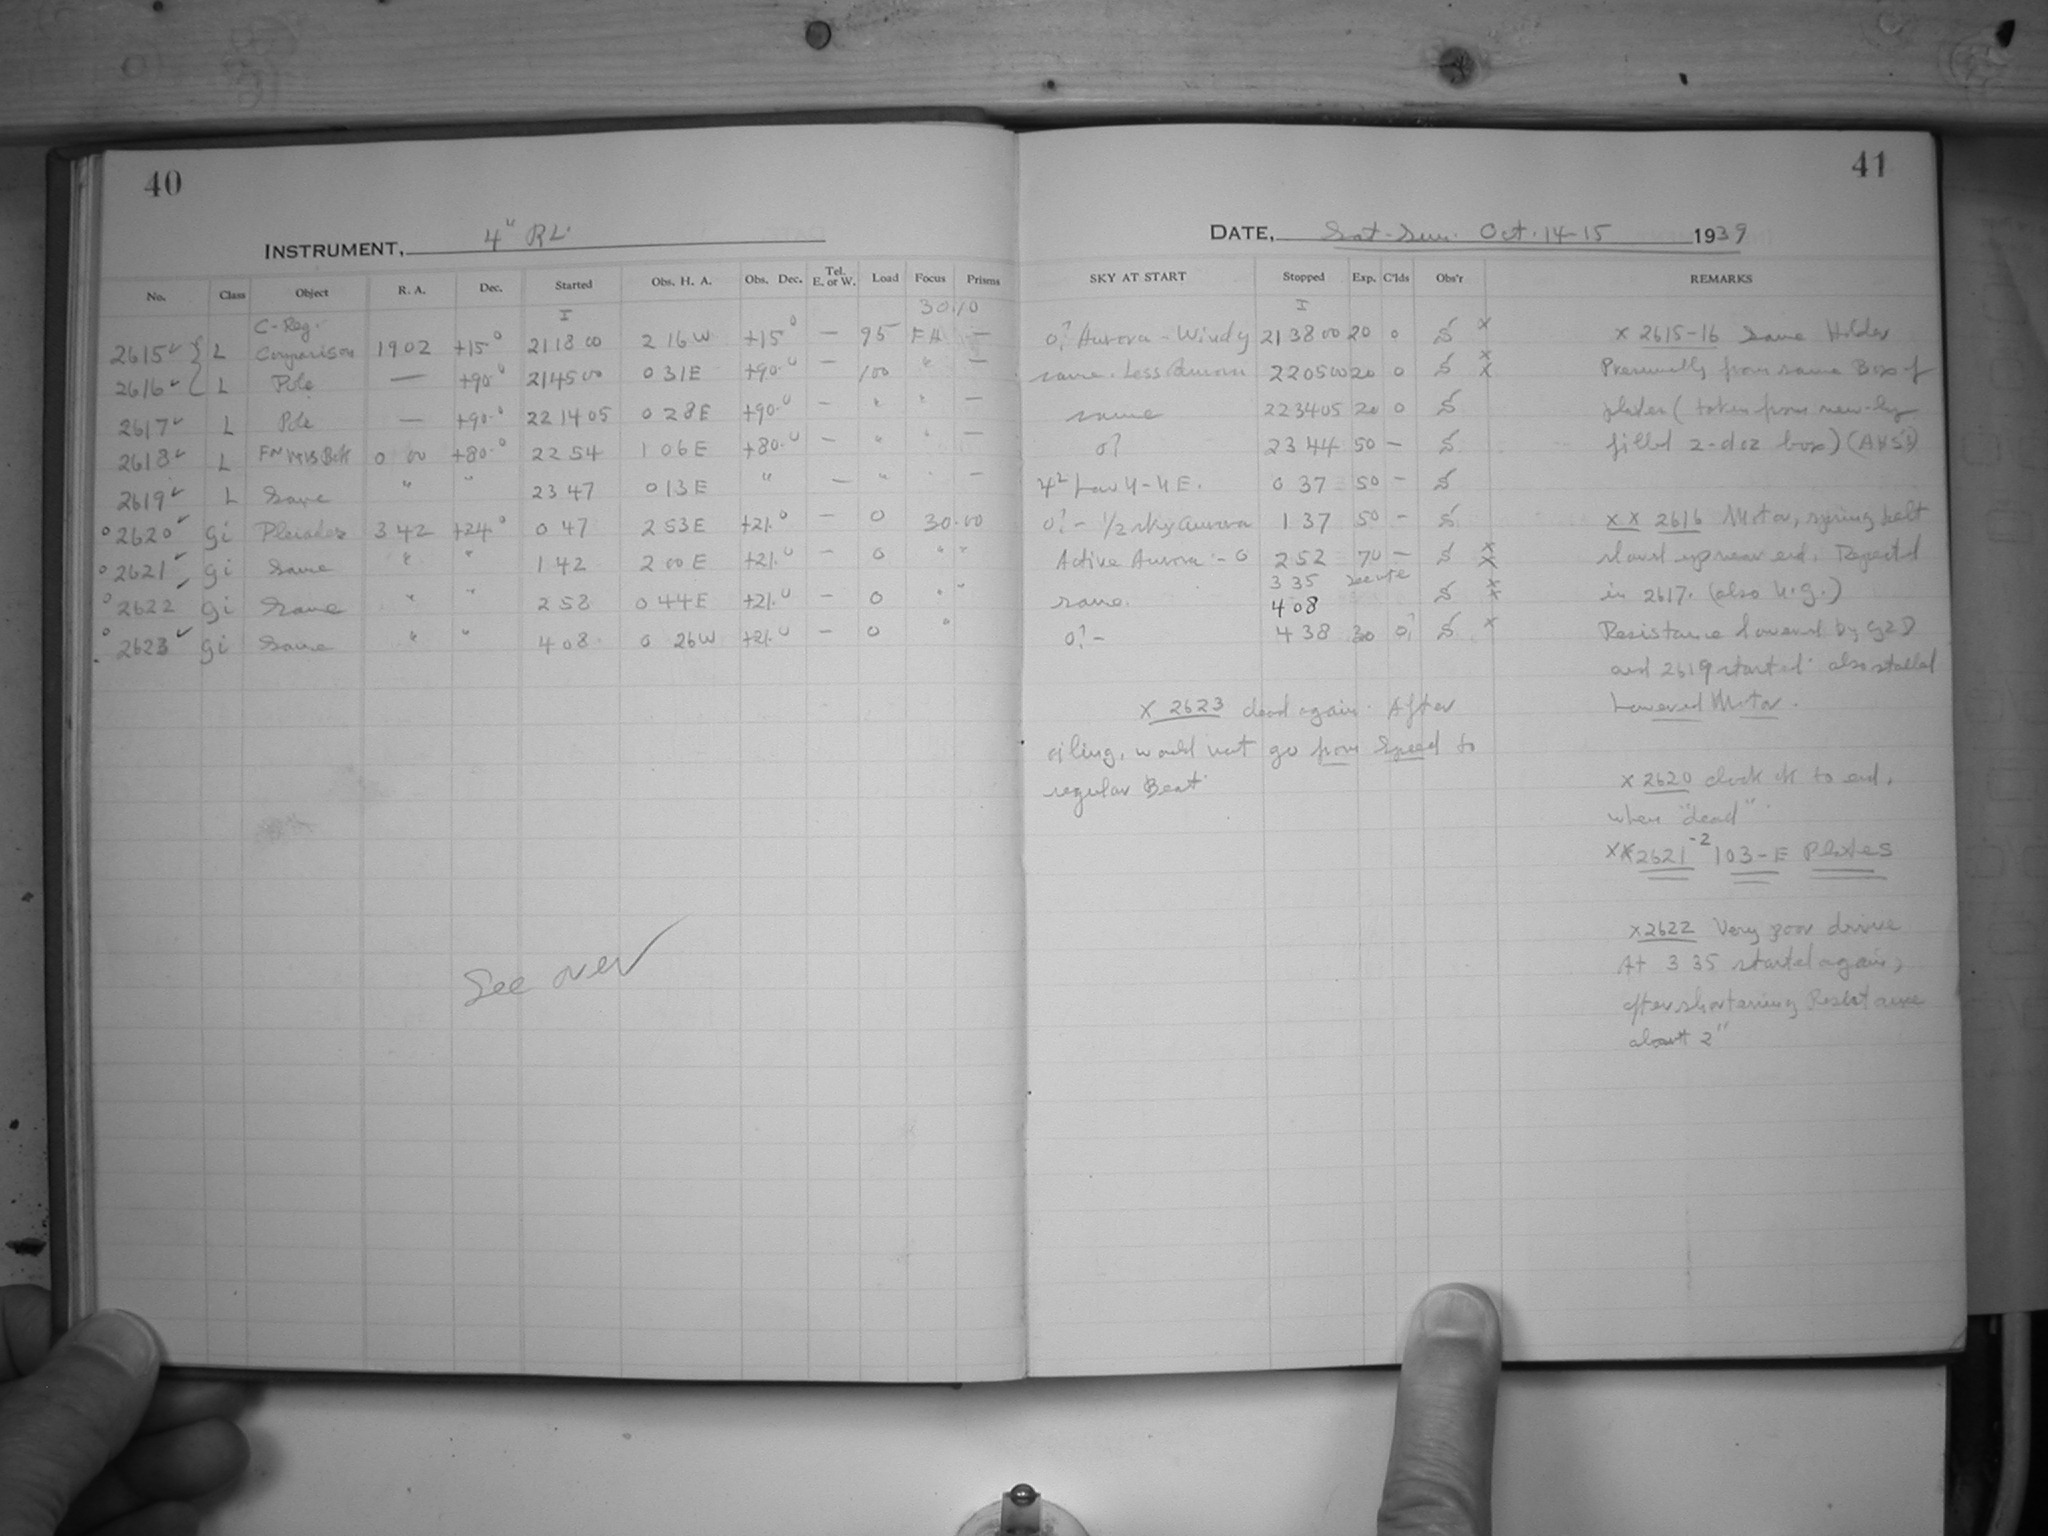 40
INSTRUMENT, 4" RL.
No. Class Object R. A. Dec. Started Obs. H. A. Obs. Dec. Tel. E. or W. Load Focus Prisms
I 30.10
C-Reg.
2615 L Comparison 19 02 +15° 21 18 00 2 16 W +15° — 95 FH —
2616 L Pole — +90.° 21 45 00 0 31 E +90.° — 100 " —
2617 L Pole — +90.° 22 14 05 0 28 E +90.° — " " —
2618 L 0 00 +80.° 22 54 1 06 E +80.° — " " —
2619 L Same " " 23 47 0 13 E " — " " —
2620 gi Pleiades 3 42 +24° 0 47 2 53 E +21.° — 0 30.00
2621 gi Same " " 1 42 2 00 E +21.° — 0 " "
2622 gi Same " " 2 58 0 44 E +21.° — 0 " "
2623 gi Same " " 4 08 0 26 W +21.° — 0 "
See over
41
DATE, Sat-Sun. Oct. 14-15 1939
SKY AT START Stopped Exp. C'lds Obs'r REMARKS
I
0? Aurora - Windy 21 38 00 20 0 S x
same. Less Aurora 22 05 00 20 0 S x x
same 22 34 05 20 0 S
0? 23 44 50 — S
Low N-NE. 0 37 50 — S
0? - 1/2 sky aurora 1 37 50 — S
Active Aurora - 0 2 52 70 — S x x
3 35
same. 4 08 S x x
0? - 4 38 30 0? S x
x 2623 dead again. After
oiling, would not go from Speed to
regular Beat
x 2615-16 Same Holder
Presumably from same Box of
plates (taken from newly
filled 2-doz box)
x x 2616 Motor, spring belt
slowed up near end. Repeated
in 2617. (also N.G.)
Resistance lowered by
and 2619 started. also stalled
Lowered Motor.
x 2620 clock ok to end,
when "dead".
xx 2621-2 103-E Plates
x 2622 Very poor drive
At 3 35 started again,
after shortening Resistance
about 2"